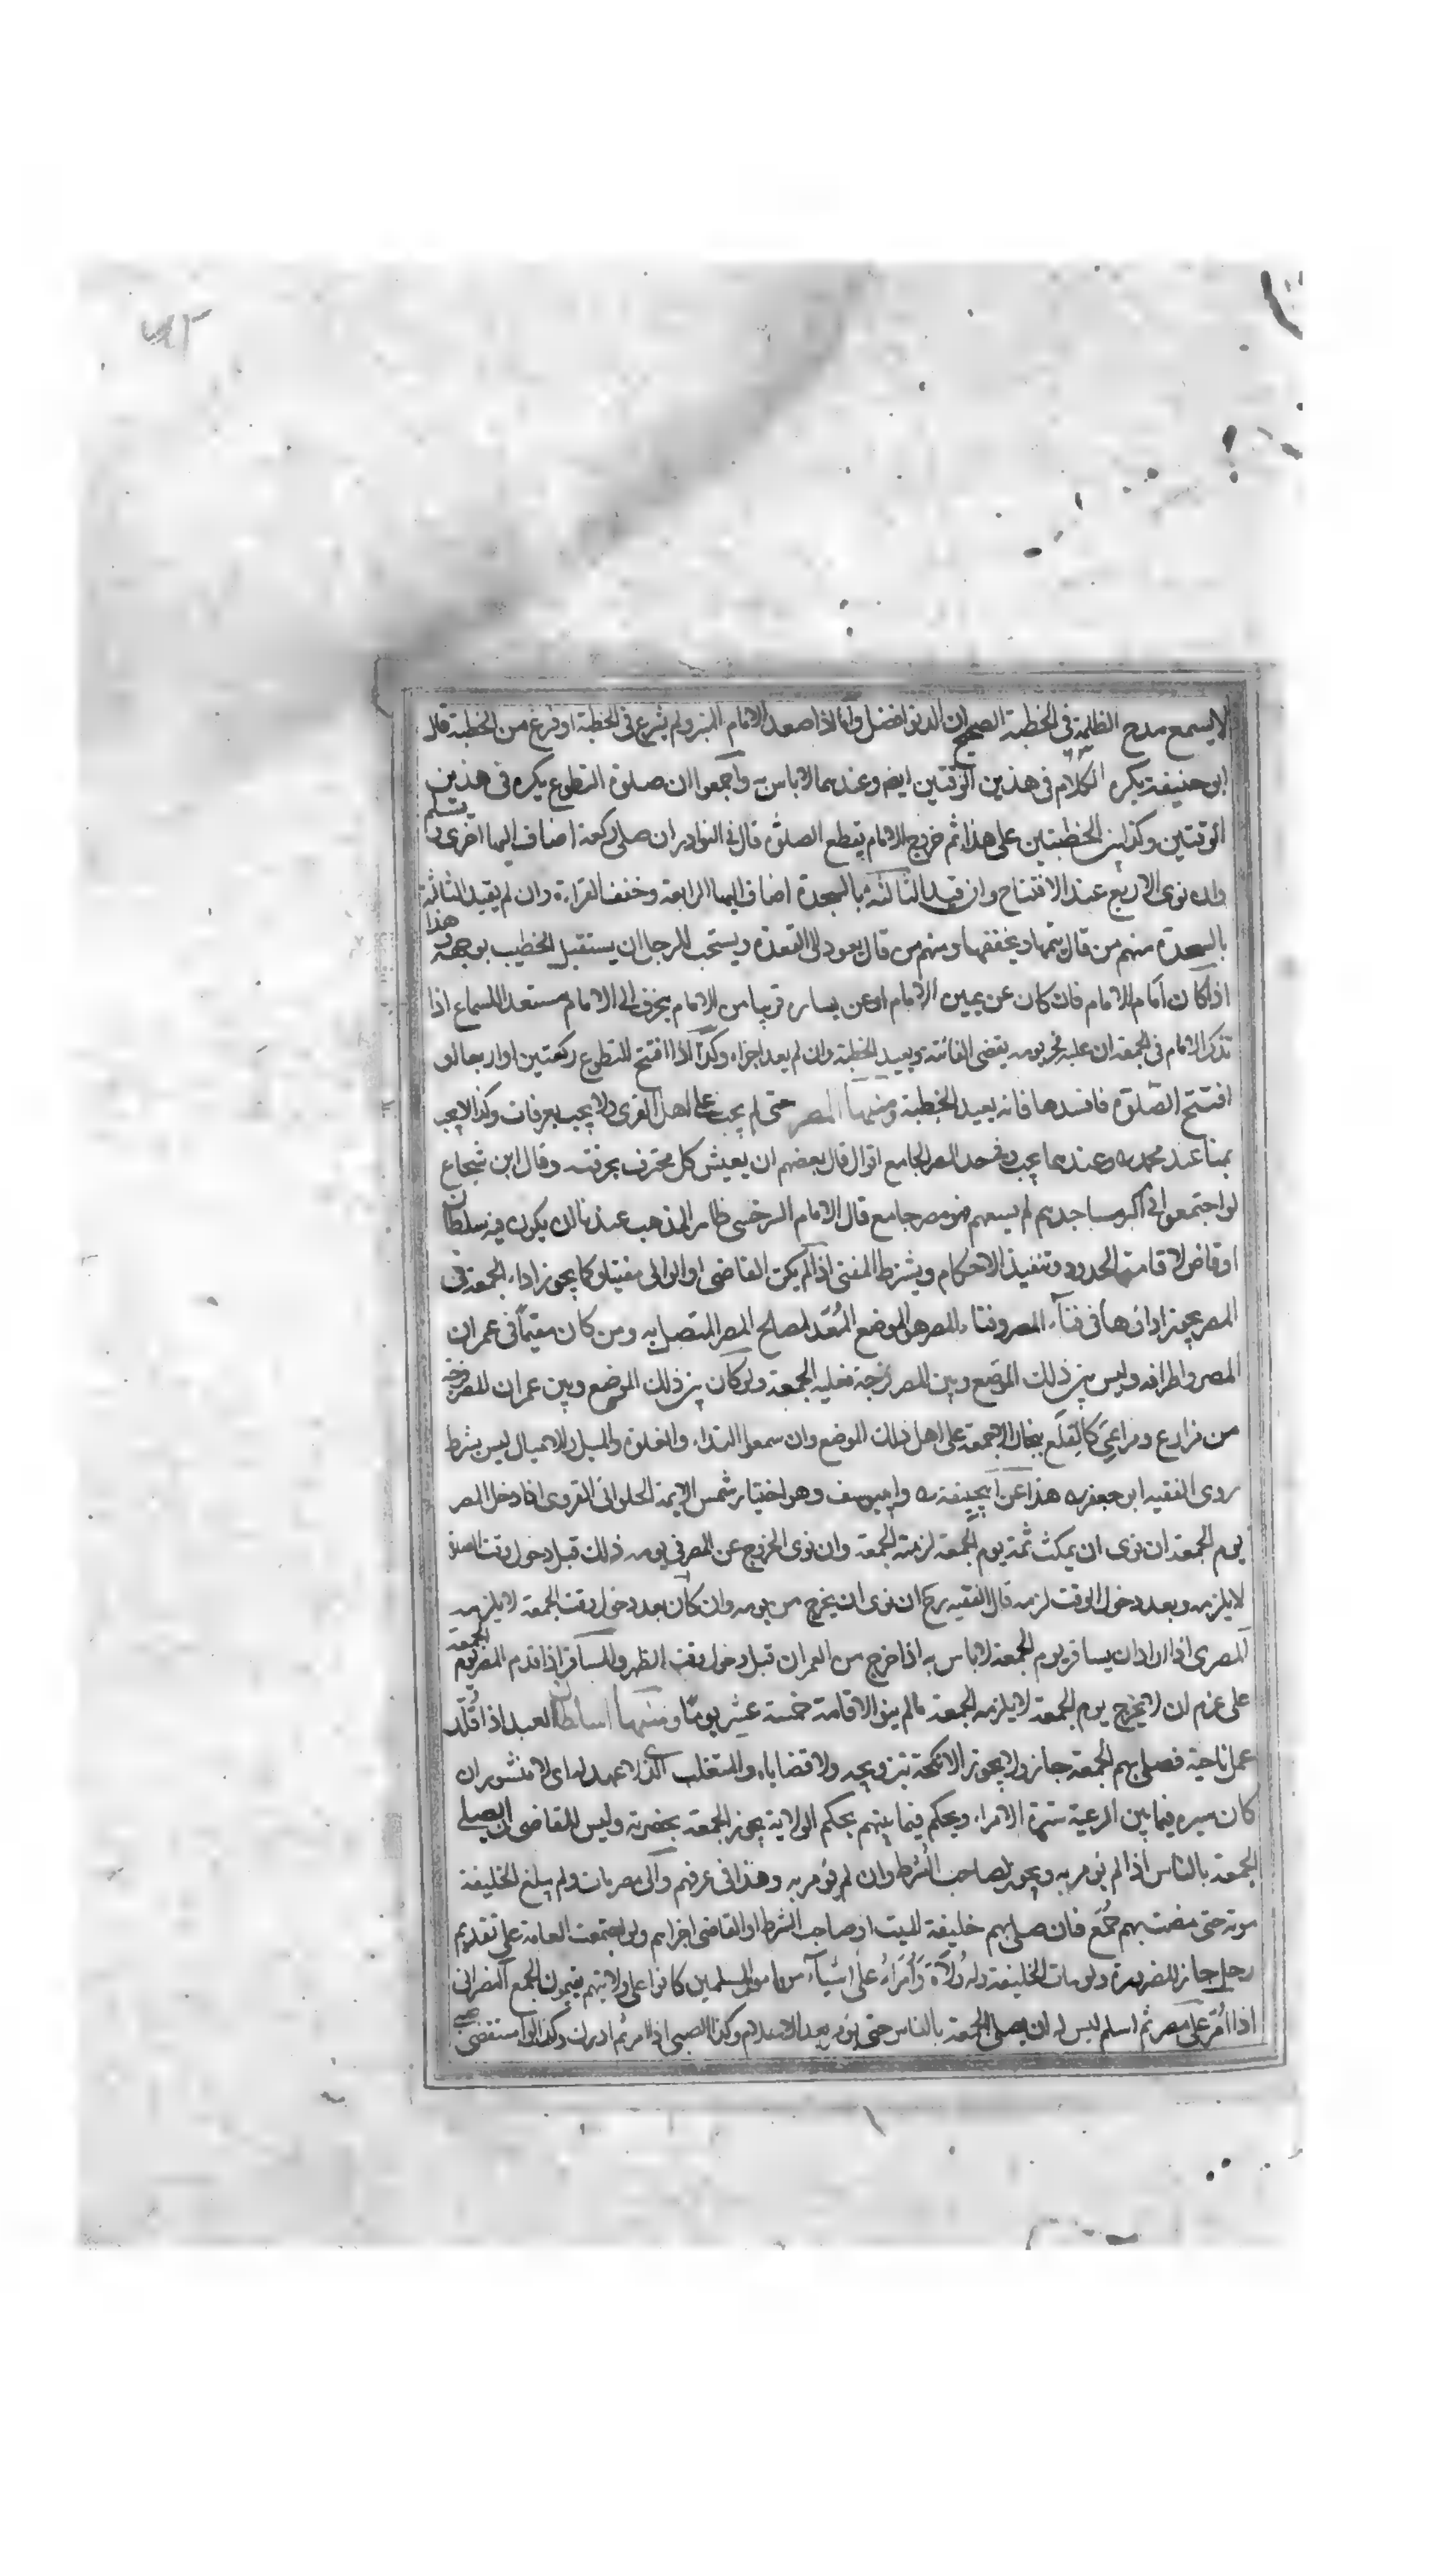 ٥٢
لا يسمع مدح الظلمة فى الخطبة الصحيح ان الدنو افضل واما اذا صعد الامام المنبر ولم يشرع فى الخطبة او فرغ من الخطبة قال
ابو حنيفة يكره الكلام فى هذين الوقتين ايض وعندهما لا باس به واجمعوا ان صلوة التطوع يكره فى هذين
الوقتين وكذا بين الخطبتين على هذا ثم خروج الامام يقطع الصلوة قال فى النوادر ان صلى ركعة اضاف اليها اخرى يسلم
وان نوى الاربع عند الافتتاح وان قيد الثالثة بالسجدة اضاف اليها الرابعة وخفف القراءة وان لم يقيد الثالثة
بالسجدة منهم من قال يتمها ويخففها ومنهم من قال يعود الى القعدة ويستحب للرجل ان يستقبل الخطيب بوجهه هذا
اذا كان امام الامام فان كان عن يمين الامام او عن يساره قريبا من الامام ينحرف الى الامام مستعدا للسماع اذا
تذكر الامام فى الجمعة ان عليه فجر يومه يقضى الفائتة ويعيد الخطبة وان لم يعد اجزاه وكذا اذا افتتح للتطوع ركعتين او اربعا لو
افتتح الصلوة فافسدها فانه يعيد الخطبة ومنها المصر حتى لم يجب على اهل القرى ولا يجب بعرفات وكذا لا يجب
بمنا عند محمد ره وعندهما يجب وفى حد المصر الجامع اقوال قال بعضهم ان يعيش كل محترف بحرفته وقال ابن شجاع
لو اجتمعوا فى اكبر مساجدهم لم يسعهم فهو مصر جامع قال الامام السرخسى ظاهر المذهب عندنا ان يكون فيه سلطان
او قاض لاقامة الحدود وتنفيذ الاحكام ويشترط المفتى اذا لم يكن القاضى او الوالى مفتيا وكما يجوز اداء الجمعة فى
المصر يجوز اداؤها فى فناء المصر وفناء المصر هو الموضع المعد لمصالح المصر المتصل به ومن كان مقيما فى عمران
المصر واطرافه وليس بين ذلك الموضع وبين المصر فرجة فعليه الجمعة ولو كان بين ذلك الموضع وبين عمران المصر فرجة
من مزارع ومراعى كالقلع ببخارا لا جمعة على اهل ذلك الموضع وان سمعوا النداء والغلوة والميل والاميال ليس بشرط
روى الفقيه ابو جعفر ره هذا عن ابيحنيفة ره وابيوسف وهو اختيار شمس الايمة الحلوانى القروى اذا دخل المصر
يوم الجمعة ان نوى ان يمكث ثمة يوم الجمعة لزمته الجمعة وان نوى الخروج عن المصر فى يومه ذلك قبل دخول وقت الصلوة
لا يلزمه وبعد دخول الوقت لزمه قال الفقيه رح ان نوى ان يخرج من يومه وان كان بعد دخول وقت الجمعة لا يلزمه
المصرى اذا اراد ان يسافر يوم الجمعة لا باس به اذا خرج من العمران قبل دخول وقت الظهر والمسافر اذا قدم المصر يوم الجمعة
على عزم ان لا يخرج يوم الجمعة لا يلزمه الجمعة ما لم ينو الاقامة خمسة عشر يوما ومنها السلطان العبد اذا قلد
عمل ناحية فصلى بهم الجمعة جاز ولا يجوز الانكحة بتزويجه ولا قضاياه والمتغلب الذى لا عهد له اى لا منشور ان
كان سيره فيما بين الرعية سيرة الامراء ويحكم فيما بينهم بحكم الولاية يجوز الجمعة بحضرته وليس للقاضى ان يصلى
الجمعة بالناس اذا لم يؤمر به ويجوز لصاحب الشرط وان لم يؤمر به وهذا فى عرفهم والى مصر مات ولم يبلغ الخليفة
موته حتى مضت بهم جمع فان صلى بهم خليفة الميت او صاحب الشرط او القاضى اجزاهم ولو اجتمعت العامة على تقديم
رجل جاز للضرورة ولو مات الخليفة وله ولاة وامراء على اشياء من امور المسلمين كانوا على ولايتهم يقيمون الجمع النصرانى
اذا امر على مصر ثم اسلم ليس له ان يصلى الجمعة بالناس حتى يؤمر بعد الاسلام وكذا الصبى اذا امر ثم ادرك وكذا لو استقضى صبى